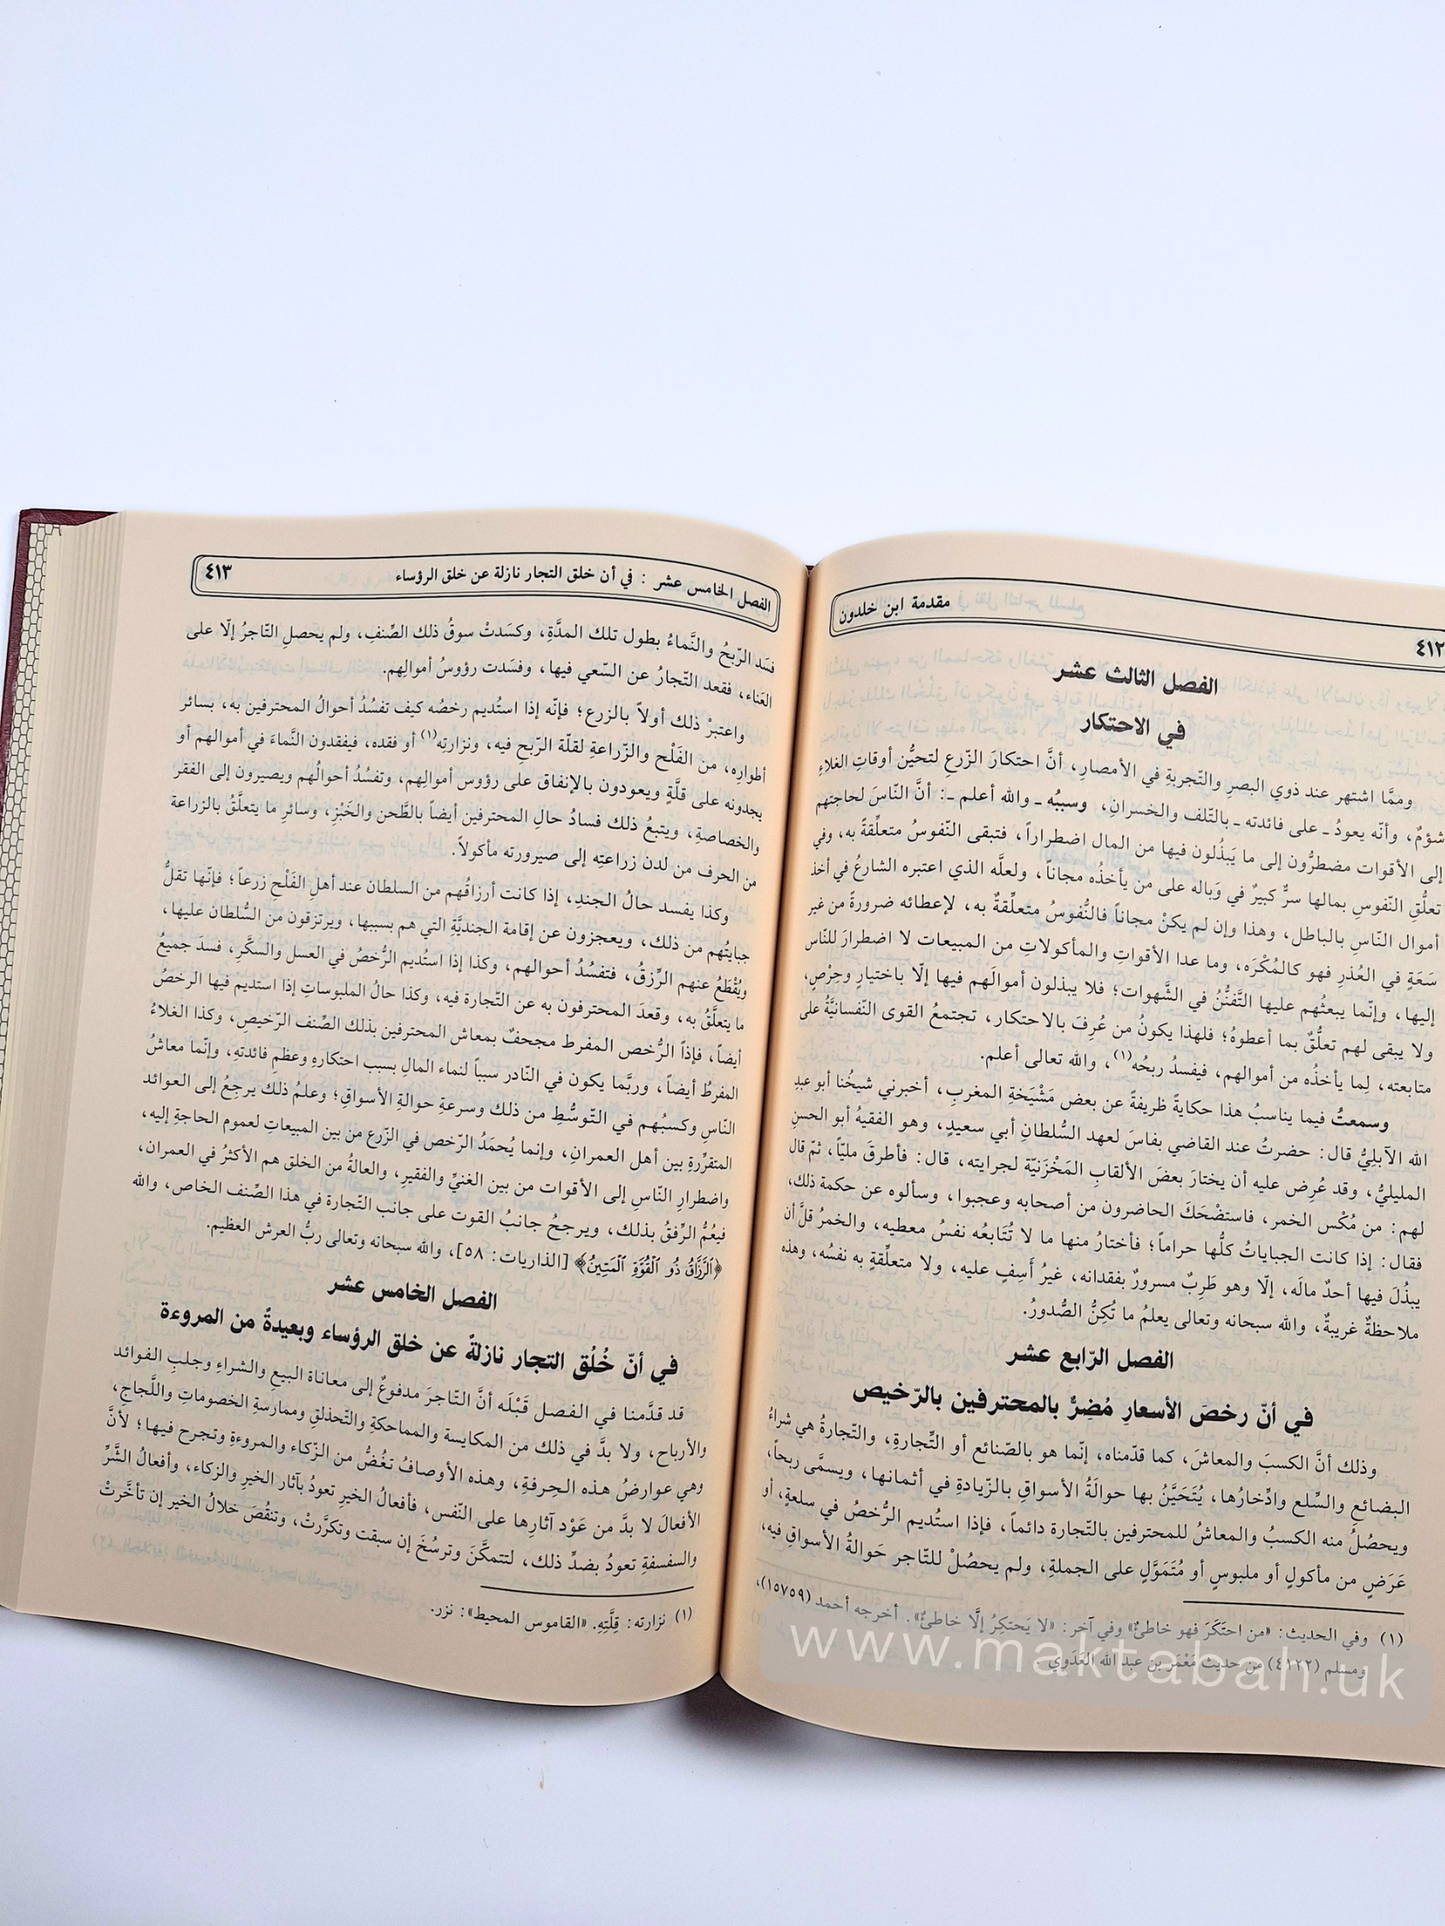 ٤١٢
مقدمة ابن خلدون
الفصل الثالث عشر
في الاحتكار
وممَّا اشتهر عند ذوي البصرِ والتّجربةِ في الأمصارِ، أنَّ احتكارَ الزّرعِ لتحيُّنِ أوقاتِ الغلاءِ
شؤمٌ، وأنّه يعودُ ـ على فائدته ـ بالتّلف والخسرانِ، وسببُه ـ والله أعلم ـ: أنَّ النّاسَ لحاجتهم
إلى الأقوات مضطرُّون إلى ما يَبذُلون فيها من المال اضطراراً، فتبقى النّفوسُ متعلِّقةً به، وفي
تعلُّقِ النّفوسِ بمالها سرٌّ كبيرٌ في وَباله على من يأخذُه مجاناً، ولعلَّه الذي اعتبره الشارعُ في أخذ
أموال النّاسِ بالباطل، وهذا وإن لم يكنْ مجاناً فالنُّفوسُ متعلِّقةٌ به، لإعطائه ضرورةً من غير
سَعَةٍ في العُذرِ فهو كالمُكْرَه، وما عدا الأقواتِ والمأكولاتِ من المبيعات لا اضطرارَ للنّاس
إليها، وإنّما يبعثُهم عليها التَّفنُّنُ في الشَّهوات؛ فلا يبذلون أموالَهم فيها إلّا باختيارٍ وحِرْصٍ،
ولا يبقى لهم تعلُّقٌ بما أعطوهُ؛ فلهذا يكونُ من عُرِفَ بالاحتكار، تجتمعُ القوى النّفسانيَّةُ على
متابعته، لِما يأخذُه من أموالهم، فيفسدُ ربحُه(١)، والله تعالى أعلم.
وسمعتُ فيما يناسبُ هذا حكايةً ظريفةً عن بعض مَشْيَخةِ المغرب، أخبرني شيخُنا أبو عبدِ
الله الآبليُّ قال: حضرتُ عند القاضي بفاسَ لعهد السُّلطانِ أبي سعيدٍ، وهو الفقيهُ أبو الحسنِ
المليليُّ، وقد عُرِض عليه أن يختارَ بعضَ الألقابِ المَخْزَنيّة لجرايته، قال: فأطرقَ مليّاً، ثمّ قال
لهم: من مُكْس الخمر، فاستضْحَكَ الحاضرون من أصحابه وعجبوا، وسألوه عن حكمة ذلك،
فقال: إذا كانت الجباياتُ كلُّها حراماً؛ فأختارُ منها ما لا تُتَابعُه نفسُ معطيه، والخمرُ قلَّ أن
يبذُلَ فيها أحدٌ مالَه، إلّا وهو طَرِبٌ مسرورٌ بفقدانه، غيرُ أَسِفٍ عليه، ولا متعلِّقةٍ به نفسُه، وهذه
ملاحظةٌ غريبةٌ، والله سبحانه وتعالى يعلمُ ما تُكِنُّ الصُّدورُ.
الفصل الرّابع عشر
في أنّ رخصَ الأسعارِ مُضِرٌّ بالمحترفين بالرّخيص
وذلك أنَّ الكسبَ والمعاشَ، كما قدّمناه، إنّما هو بالصّنائع أو التِّجارةِ، والتّجارةُ هي شراءُ
البضائعِ والسِّلع وادِّخارُها، يُتَحَيَّنُ بها حوالَةُ الأسواقِ بالزّيادةِ في أثمانها، ويسمَّى ربحاً،
ويحصُلُ منه الكسبُ والمعاشُ للمحترفين بالتّجارة دائماً، فإذا استُديم الرُّخصُ في سلعةٍ، أو
عَرَضٍ من مأكولٍ أو ملبوسٍ أو مُتَمَوَّلٍ على الجملةِ، ولم يحصُلْ للتّاجر حَوالةُ الأسواقِ فيه،
(١) وفي الحديث: «من احتَكَرَ فهو خاطئٌ» وفي آخر: «لا يَحتكِرُ إلَّا خاطئٌ». أخرجه أحمد (١٥٧٥٩)،
ومسلم (٤١٢٢) من حديث مَعْمَر بن عبد الله العَدَوي.
الفصل الخامس عشر : في أن خلق التجار نازلة عن خلق الرؤساء
٤١٣
فسَد الرّبحُ والنَّماءُ بطول تلك المدَّةِ، وكسَدتْ سوقُ ذلك الصِّنفِ، ولم يحصلِ التّاجرُ إلّا على
العَناء، فقعد التّجارُ عن السّعي فيها، وفسَدت رؤوسُ أموالِهم.
واعتبرْ ذلك أولاً بالزرع؛ فإنّه إذا استُديم رخصُه كيف تفسُدُ أحوالُ المحترفين به، بسائر
أطواره، من الفَلْح والزّراعةِ لقلّة الرّبحِ فيه، ونزارتِه(١) أو فقده، فيفقدون النَّماءَ في أموالهم أو
يجدونه على قلَّةٍ ويعودون بالإنفاق على رؤوس أموالِهم، وتفسُدُ أحوالُهم ويصيرون إلى الفقر
والخصاصةِ، ويتبعُ ذلك فسادُ حالِ المحترفين أيضاً بالطَّحن والخَبْزِ، وسائرِ ما يتعلَّقُ بالزراعة
من الحرف من لدن زراعتِه إلى صيرورته مأكولاً.
وكذا يفسد حالُ الجندِ، إذا كانت أرزاقُهم من السلطان عند أهلِ الفَلْحِ زرعاً؛ فإنّها تقلُّ
جبايتُهم من ذلك، ويعجزون عن إقامة الجنديَّةِ التي هم بسببها، ويرتزقون من السُّلطان عليها،
ويُقْطَعُ عنهم الرِّزقُ، فتفسُدُ أحوالهم، وكذا إذا استُديم الرُّخصُ في العسل والسكَّرِ، فسدَ جميعُ
ما يتعلَّقُ به، وقعدَ المحترفون به عن التّجارة فيه، وكذا حالُ الملبوساتِ إذا استديم فيها الرخصُ
أيضاً، فإذاً الرُّخص المفرط مجحفٌ بمعاش المحترفين بذلك الصِّنف الرّخيصِ، وكذا الغلاءُ
المفرطُ أيضاً، وربَّما يكون في النّادر سبباً لنماء المالِ بسبب احتكارِهِ وعظمِ فائدتهِ، وإنّما معاشُ
النّاسِ وكسبُهم في التّوسُّطِ من ذلك وسرعةِ حوالةِ الأسواقِ؛ وعلمُ ذلك يرجِعُ إلى العوائد
المتقرِّرةِ بين أهل العمرانِ، وإنما يُحمَدُ الرّخص في الزّرع من بين المبيعاتِ لعموم الحاجةِ إليه،
واضطرارِ النّاسِ إلى الأقوات من بين الغنيِّ والفقيرِ، والعالةُ من الخلق هم الأكثرُ في العمران،
فيعُمُّ الرِّفقُ بذلك، ويرجحُ جانبُ القوت على جانب التّجارة في هذا الصِّنف الخاص، والله
﴿ٱلرَّزَّاقُ ذُو ٱلۡقُوَّةِ ٱلۡمَتِينُ﴾ [الذاريات: ٥٨]، والله سبحانه وتعالى ربُّ العرش العظيم.
الفصل الخامس عشر
في أنّ خُلُق التجار نازلةٌ عن خلق الرؤساء وبعيدةٌ من المروءة
قد قدَّمنا في الفصل قَبْلَه أنَّ التّاجرَ مدفوعٌ إلى معاناة البيعِ والشراءِ وجلبِ الفوائد
والأرباح، ولا بدَّ في ذلك من المكايسة والمماحكةِ والتّحذلقِ وممارسةِ الخصوماتِ واللَّجاجِ،
وهي عوارضُ هذه الحِرفةِ، وهذه الأوصافُ تغُضُّ من الزّكاء والمروءةِ وتجرح فيها؛ لأنَّ
الأفعالَ لا بدَّ من عَوْد آثارِها على النّفس، فأفعالُ الخيرِ تعودُ بآثار الخيرِ والزكاء، وأفعالُ الشَّرِّ
والسفسفةِ تعودُ بضدِّ ذلك، لتتمكَّنَ وترسُخَ إن سبقت وتكرَّرتْ، وتنقُصَ خلالُ الخير إن تأخَّرتْ
(١) نزارته: قِلَّتِهِ. «القاموس المحيط»: نزر.
www.maktabah.uk